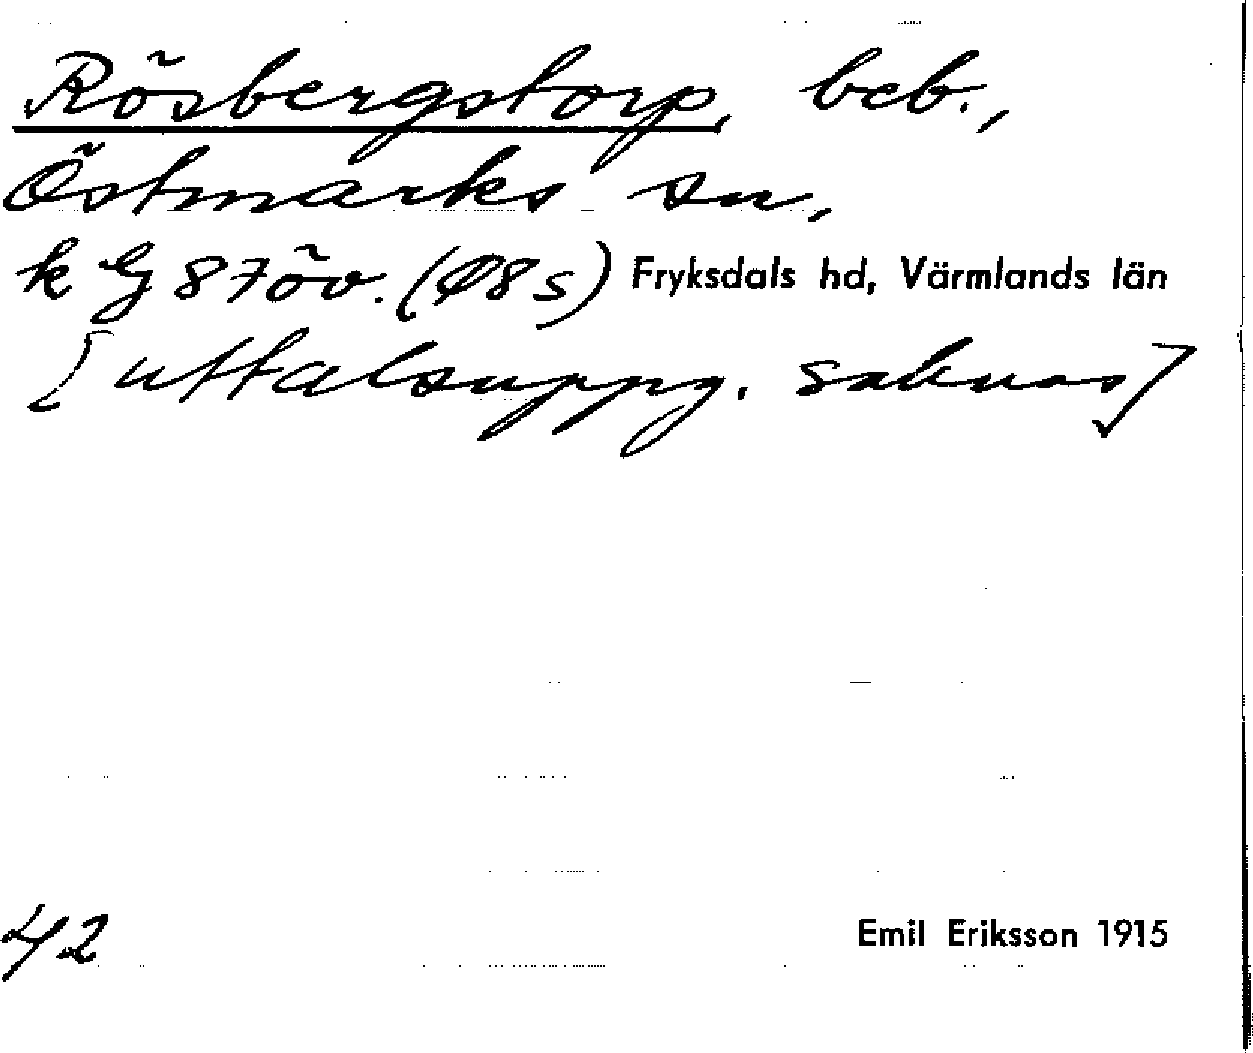 Rösbergstorp, beb.,
Östmarks sn,
k G 87öv. (Ø8s) Fryksdals hd, Värmlands län
[uttalsuppg. saknas]
42
Emil Eriksson 1915